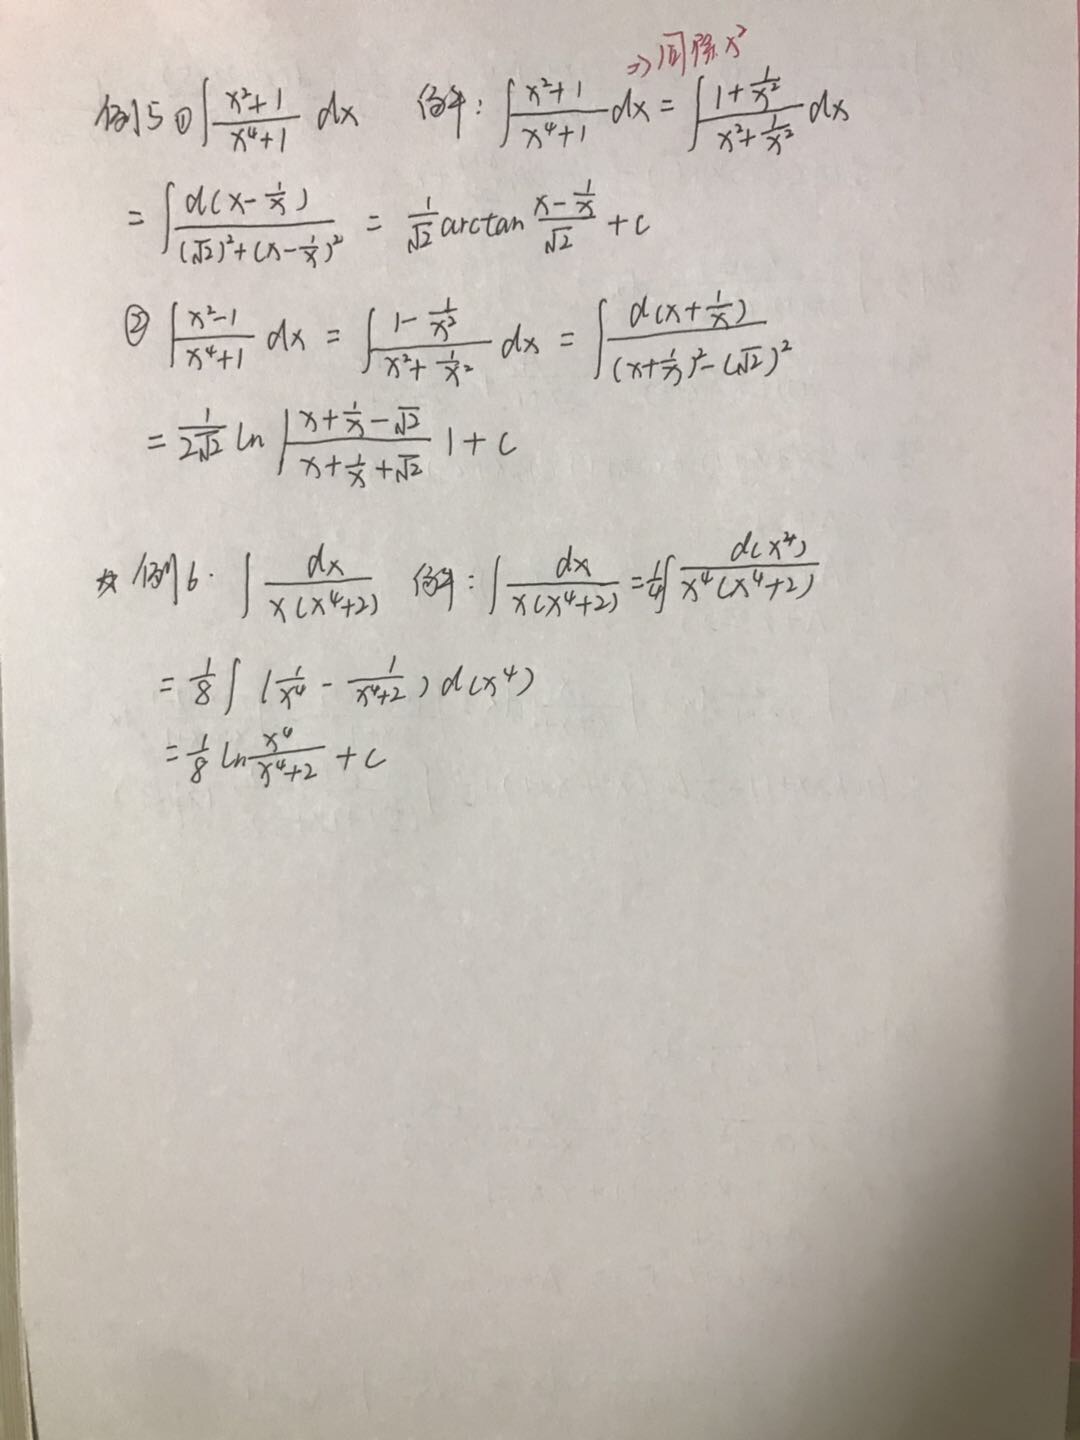 ⇒同除x²
例5 ① ∫ (x²+1)/(x⁴+1) dx 解: ∫ (x²+1)/(x⁴+1) dx = ∫ (1+1/x²)/(x²+1/x²) dx
= ∫ d(x-1/x)/((√2)²+(x-1/x)²) = 1/√2 arctan (x-1/x)/√2 + c
② ∫ (x²-1)/(x⁴+1) dx = ∫ (1-1/x²)/(x²+1/x²) dx = ∫ d(x+1/x)/((x+1/x)²-(√2)²)
= 1/(2√2) ln |(x+1/x-√2)/(x+1/x+√2)| + c
☆ 例6. ∫ dx/(x(x⁴+2)) 解: ∫ dx/(x(x⁴+2)) = 1/4 ∫ d(x⁴)/(x⁴(x⁴+2))
= 1/8 ∫ (1/x⁴ - 1/(x⁴+2)) d(x⁴)
= 1/8 ln x⁴/(x⁴+2) + c